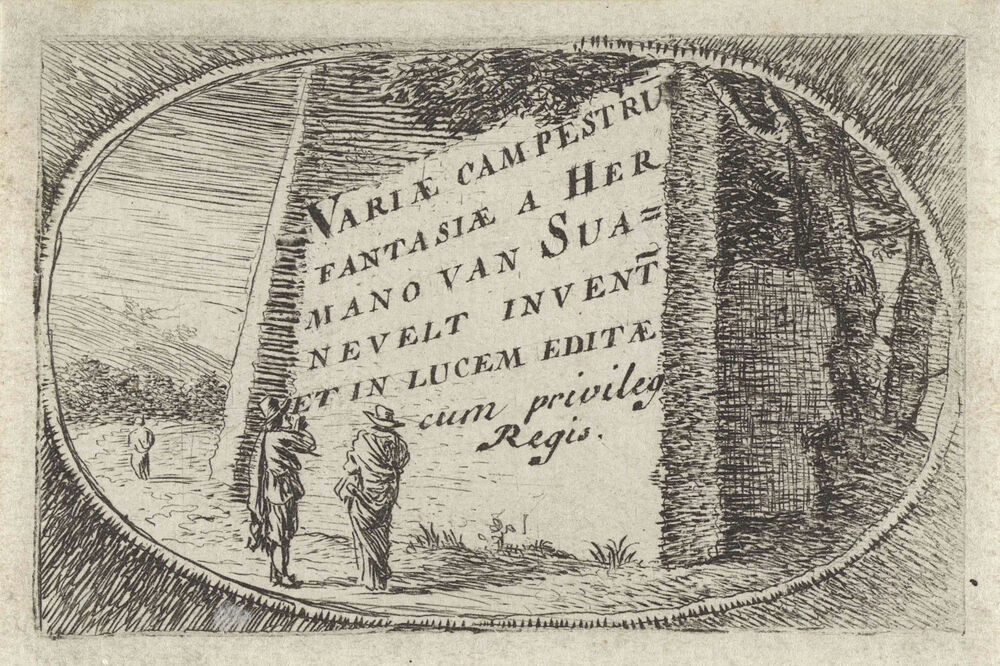 VARIÆ CAMPESTRŪ
FANTASIÆ A HER
MANO VAN SUA=
NEVELT INVENT̄
ET IN LUCEM EDITÆ
cum privileg
Regis.